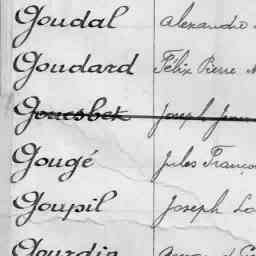 Goudal Alexandre
Goudard Félix Pierre
Gouesbet Joseph Jean
Gougé Jules Franco
Goupil Joseph Lo
Gourdin